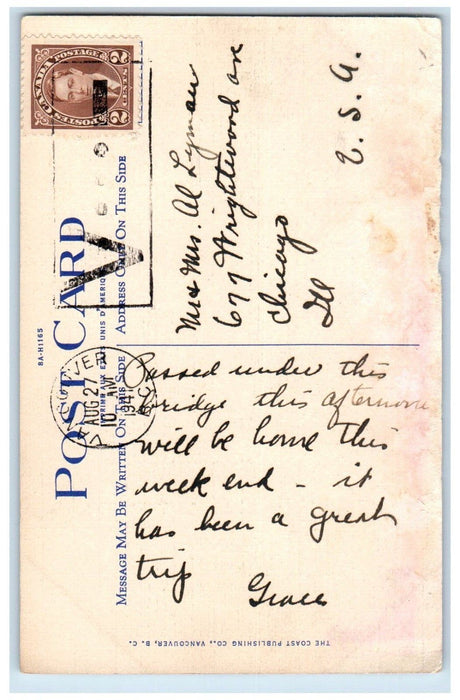 CANADA POSTAGE
POSTES
2 CENTS 2
POST CARD
8A-H1165
MESSAGE MAY BE WRITTEN ON THIS SIDE
ADDRESS ONLY ON THIS SIDE
VANCOUVER
AUG 27
10 AM
1941
Mr & Mrs. Al Lyman
677 Wrightwood ave
Chicago
Ill
U. S. A.
Passed under this
bridge this afternoon
will be home this
week end - it
has been a great
trip
Grace
THE COAST PUBLISHING CO., VANCOUVER, B. C.